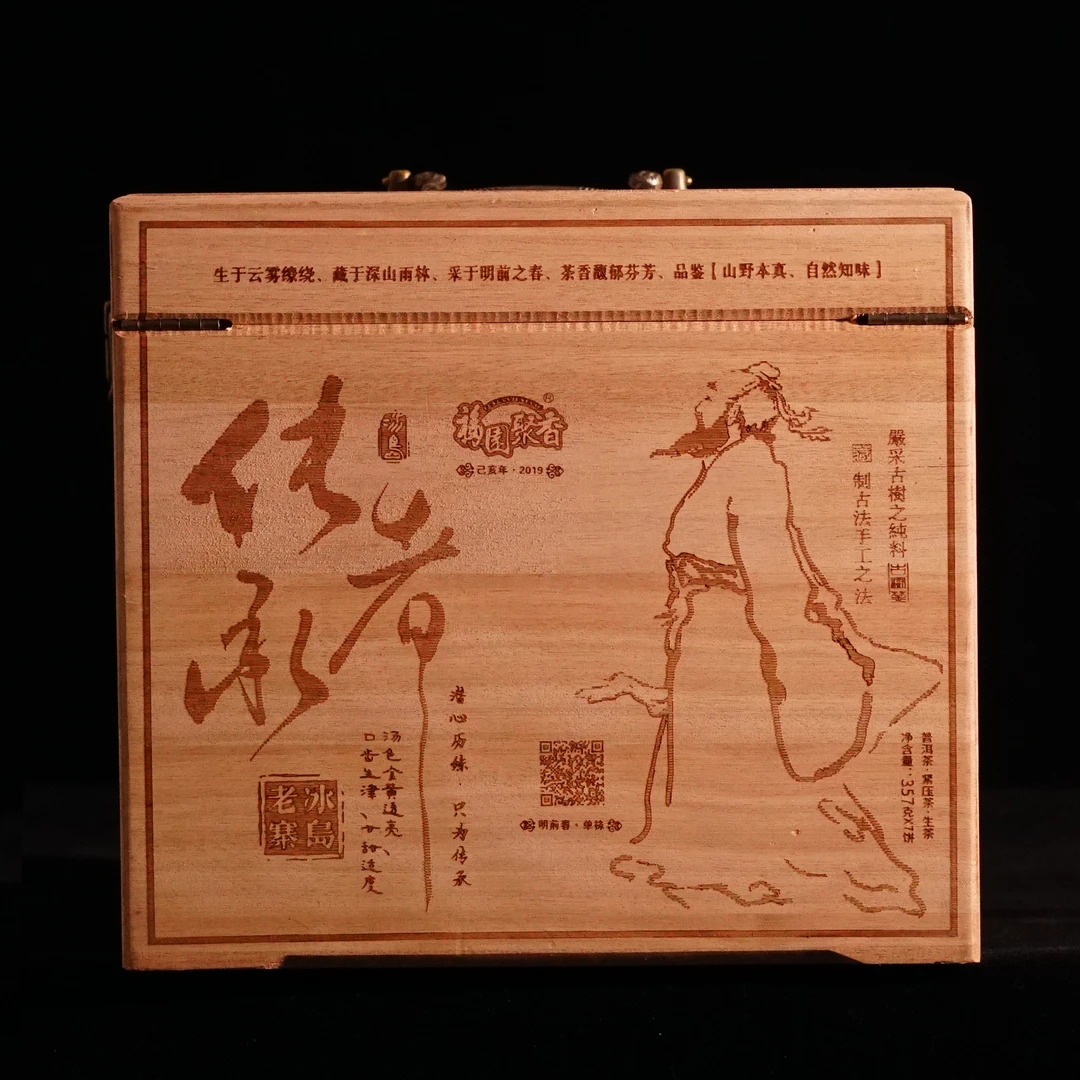 生于云雾缭绕、藏于深山雨林、采于明前之春、茶香馥郁芬芳、品鉴【山野本真、自然知味】
传承者
梅园聚香®
己亥年·2019
嚴采古樹之純料
制古法手工之法
潜心历练·只为传承
汤色金黄透亮、
口香生津、甘甜适度
冰島
老寨
明前春·单株
普洱茶·紧压茶·生茶
净含量:357gX7饼